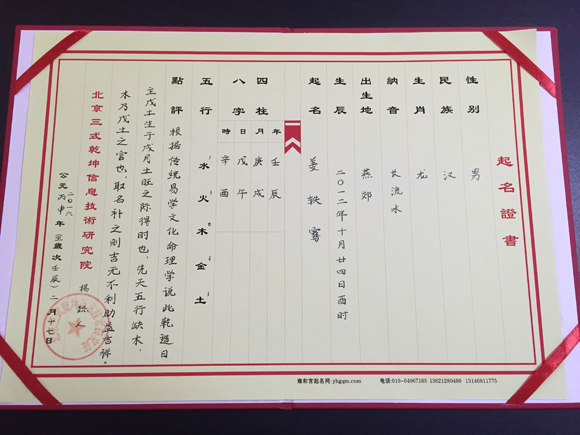 起名證書
性别 男
民族 汉
生肖 龙
納音 长流水
出生地 燕郊
生辰 二〇一二年十月廿四日酉时
起名 姜轶骞
四柱 年 月 日 時
八字 壬辰 庚戌 戊午 辛酉
五行 水 火 木 金 土
點評 根据传统易学文化命理学说此乾造日
主戊土生于戌月土旺之际得时也，先天五行缺木，
木乃戊土之官也，取名补之则吉无不利助益吉祥。
北京三式乾坤信息技術研究院 杨 人
公元二〇一六 丙申 年 歲次 二月十七日
雍和宫起名网:yhgqm.com 电话:010-64067185 13621280499 13146811775